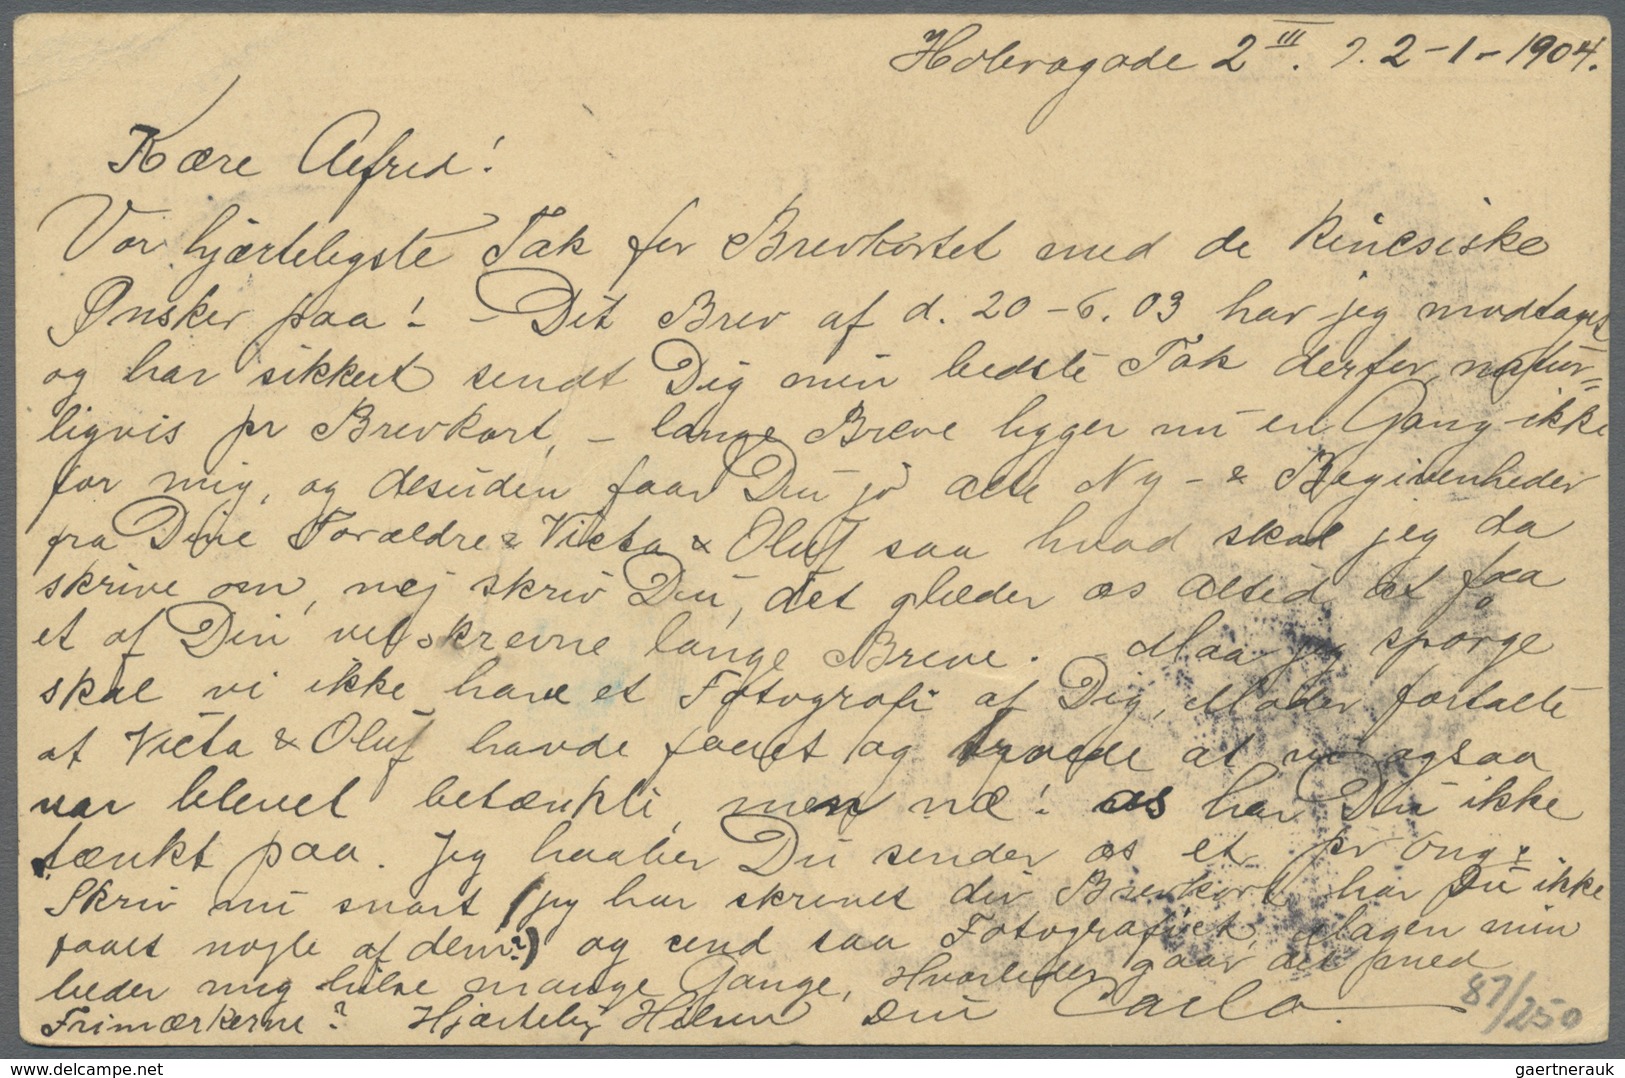 Holbergsgade 2 III. d. 2-1-1904.
Kære Alfred!
Vor hjærteligste Tak for Brevkortet med de kinesiske
Ønsker paa! - Dit Brev af d. 20-6.03 har jeg modtaget
og har sikkert sendt Dig min bedste Tak derfor, natur=
ligvis pr Brevkort, - lange Breve ligger nu en Gang ikke
for mig, og desuden faar Du jo alle Ny- & Begivenheder
fra Dine Forældre & Victa & Oluf saa hvad skal jeg da
skrive om, nej skriv Du, det glæder os altid at faa
et af Din velskrevne lange Breve. - Maa jeg spørge
skal vi ikke have et Fotografi af Dig, Moder fortalte
at Victa & Oluf havde faaet og troede at vi ogsaa
var blevet betænkt, men næ! os har Du ikke
tænkt paa. Jeg haaber Du sender os et pr omg.
Skriv nu snart (jeg har skrevet div Brevkort, har Du ikke
faaet nogle af dem?) og send saa Fotografiet, Magen min
beder mig hilse mange Gange, Hvorledes gaar det med
Frimærkerne? Hjærtelig Hilsen Din Carlo.
87/250
© www.delcampe.net
gaertnerauk